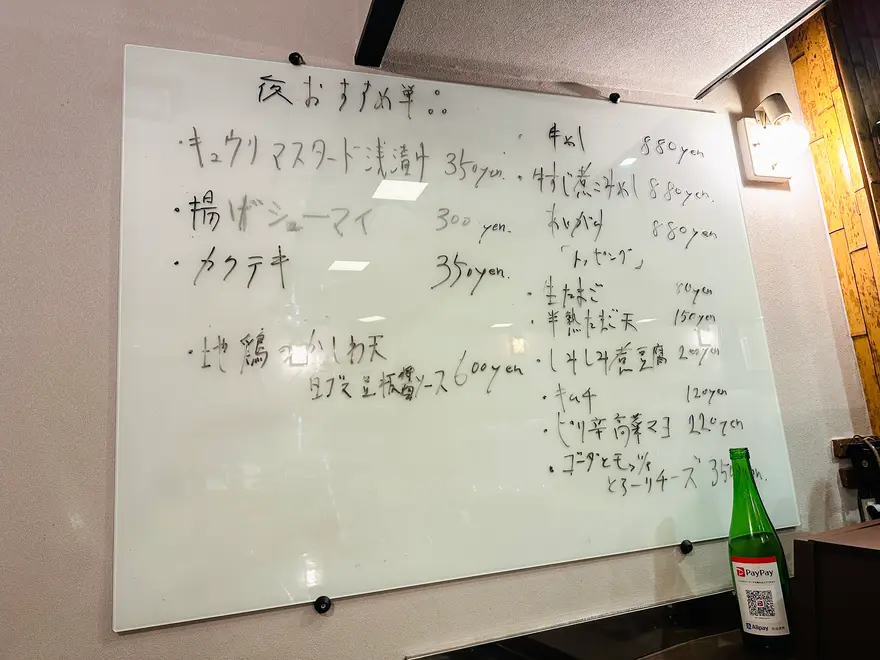 夜おすすめ単::
・キュウリマスタード浅漬け 350yen.
・揚げシューマイ 300 yen.
・カクテキ 350yen.
・地鶏のかしわ天
豆板醤ソース 600yen
・牛めし 880yen
・牛すじ煮こみめし 880yen.
880yen
「トッピング」
・生たまご 80yen
・半熟たまご天 150yen
・しみしみ煮豆腐 200yen
・キムチ 120yen
・ピリ辛高菜マヨ 220yen
・ゴーダとモッツァ
とろーりチーズ 350yen.
PayPay
Alipay